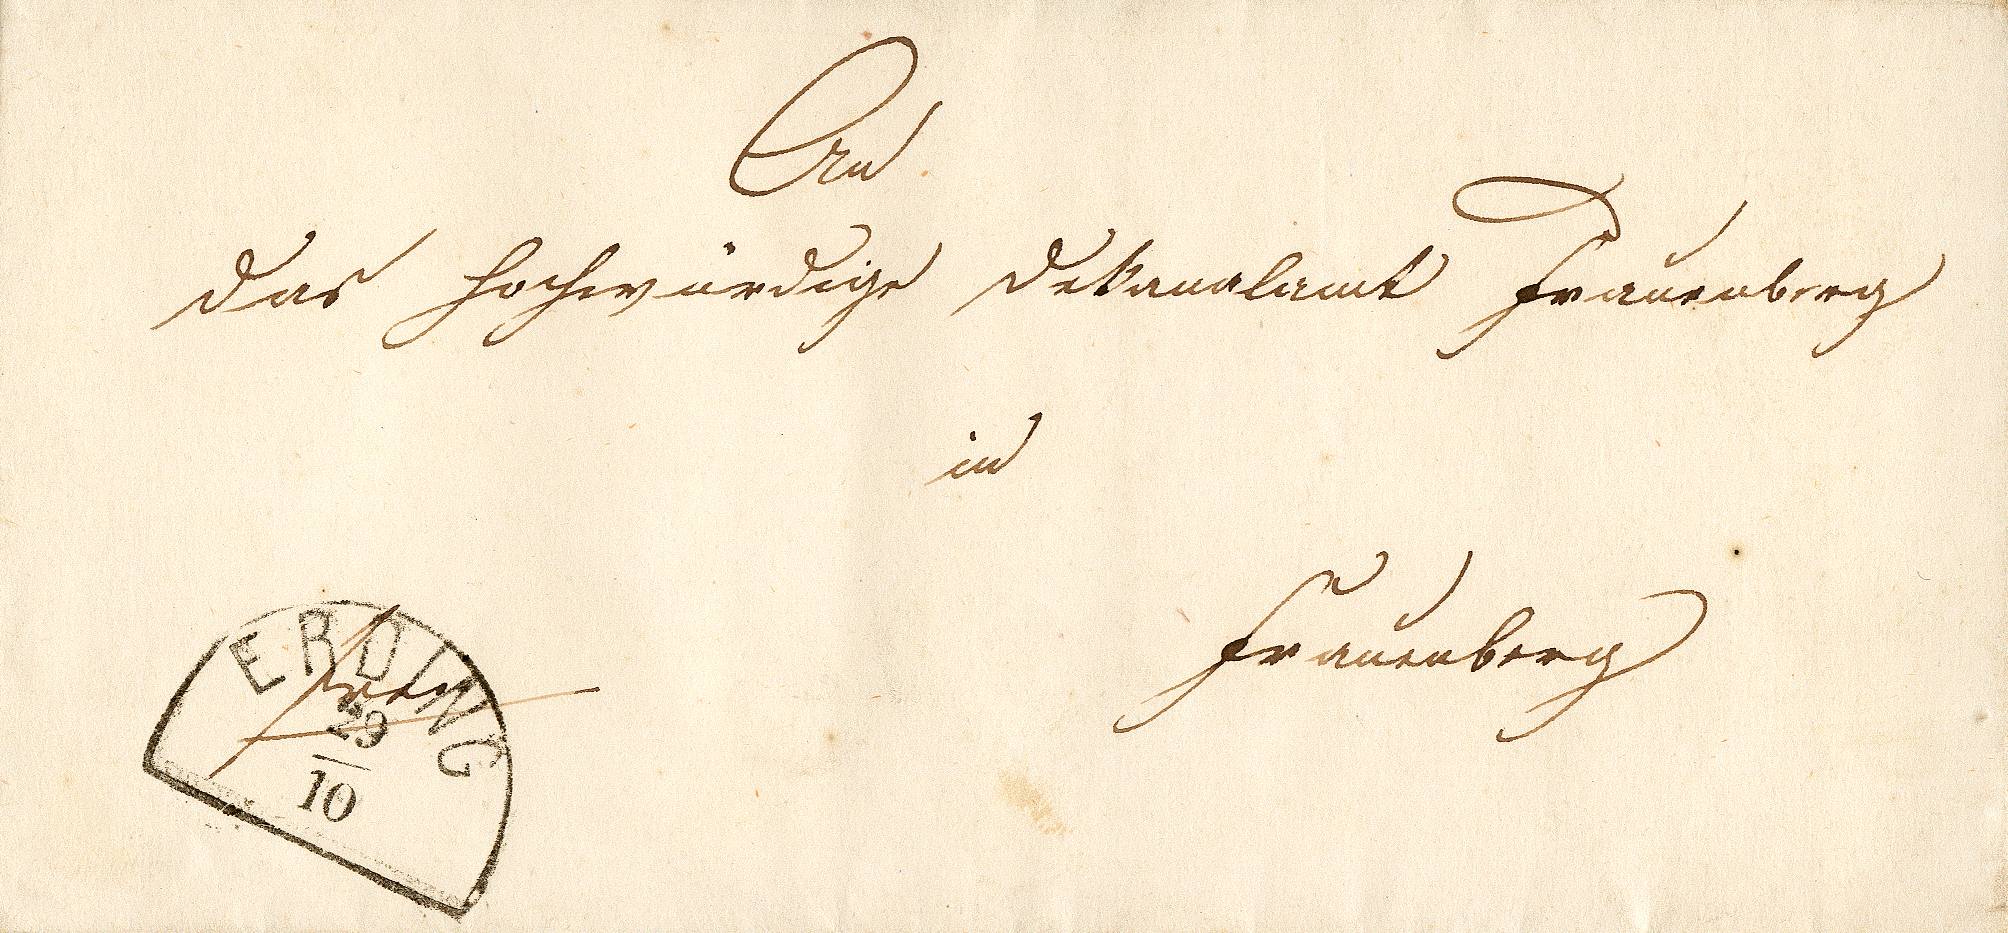 An
das hochwürdige Dekanalamt Frauenberg
in
Frauenberg
ERDING
frei
29
10